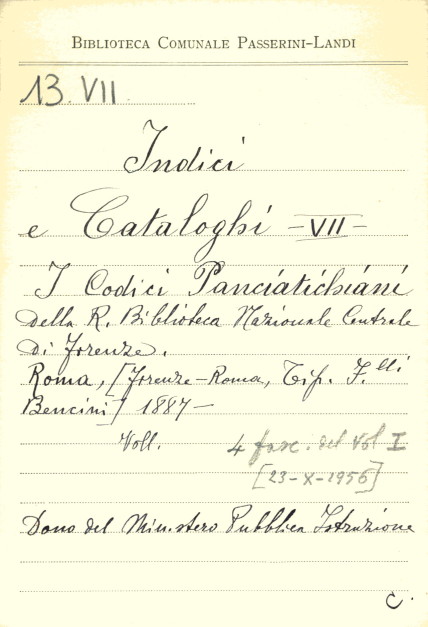 BIBLIOTECA COMUNALE PASSERINI-LANDI
13.VII
Indici
e Cataloghi - VII -
I Codici Panciatichiani
della R. Biblioteca Nazionale Centrale
di Firenze.
Roma, [Firenze-Roma, Tip. F.lli
Bencini] 1887 -
Voll. 4 fasc. del Vol I
[23-X-1956]
Dono del Ministero Pubblica Istruzione
C.